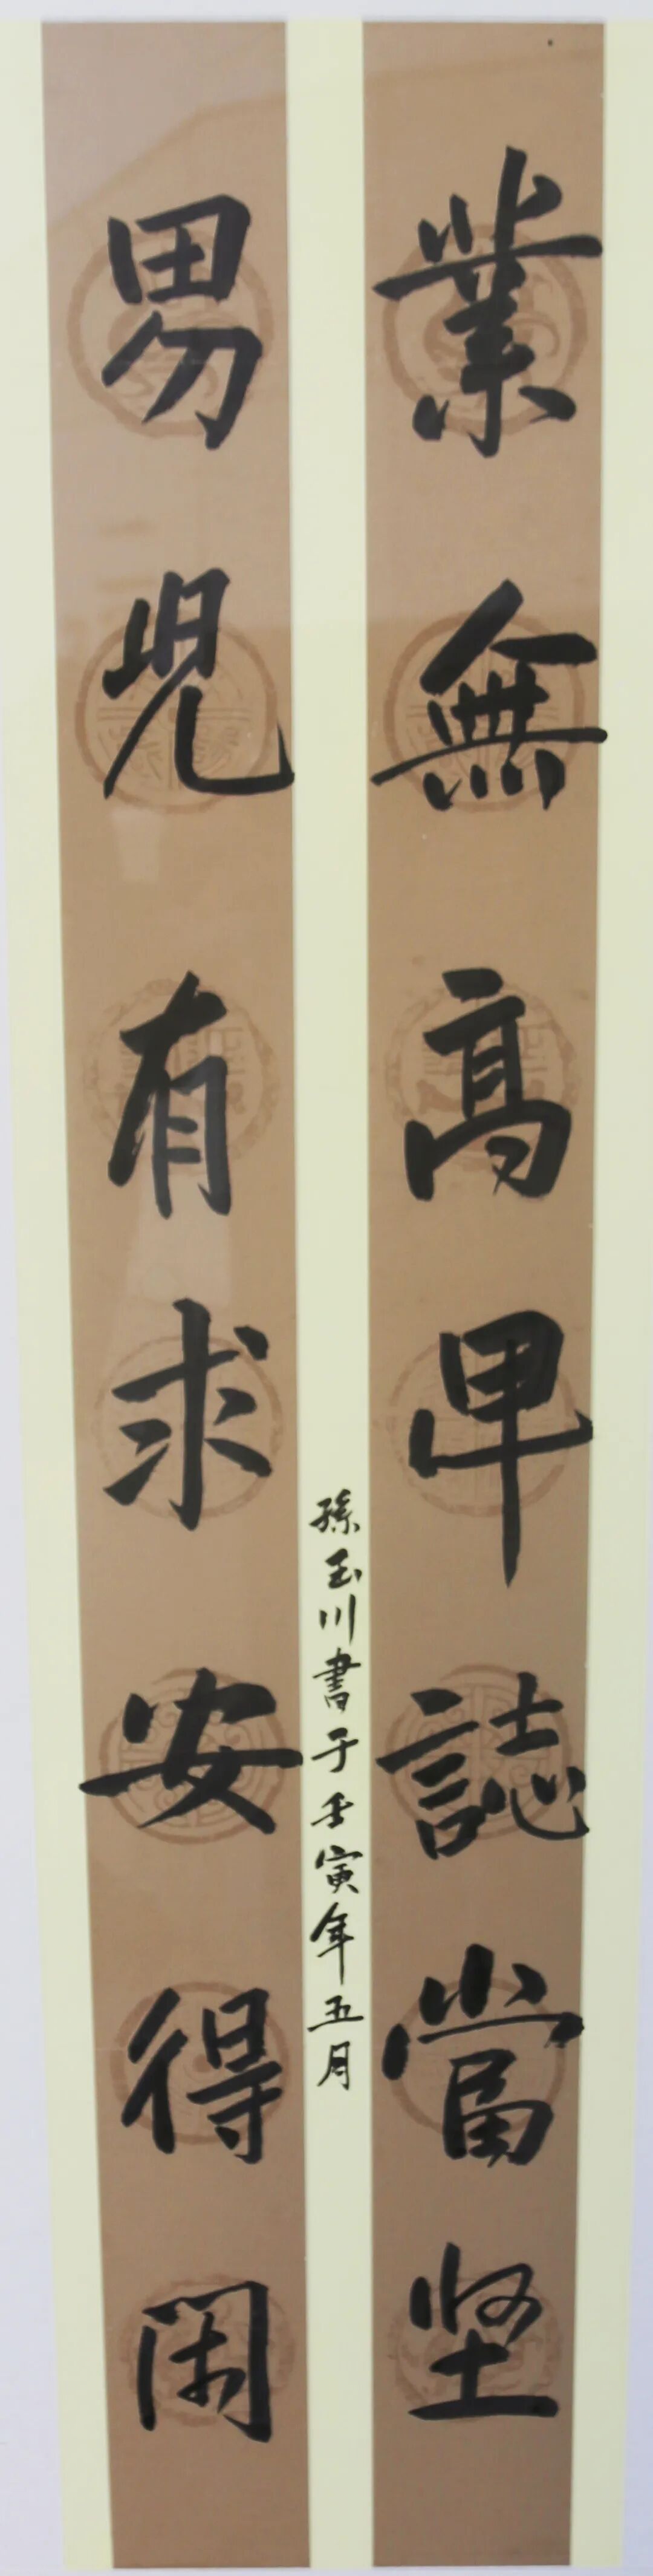 業無高卑誌當坚
男兒有求安得閑
孫玉川書于壬寅年五月